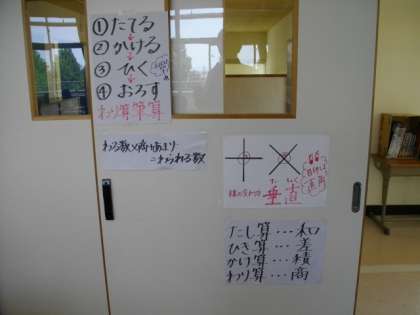 ①たてる
②かける
③ひく
④おろす
わり算筆算
わる数×商+あまり
=わられる数
垂直
たし算…和
ひき算…差
かけ算…積
わり算…商